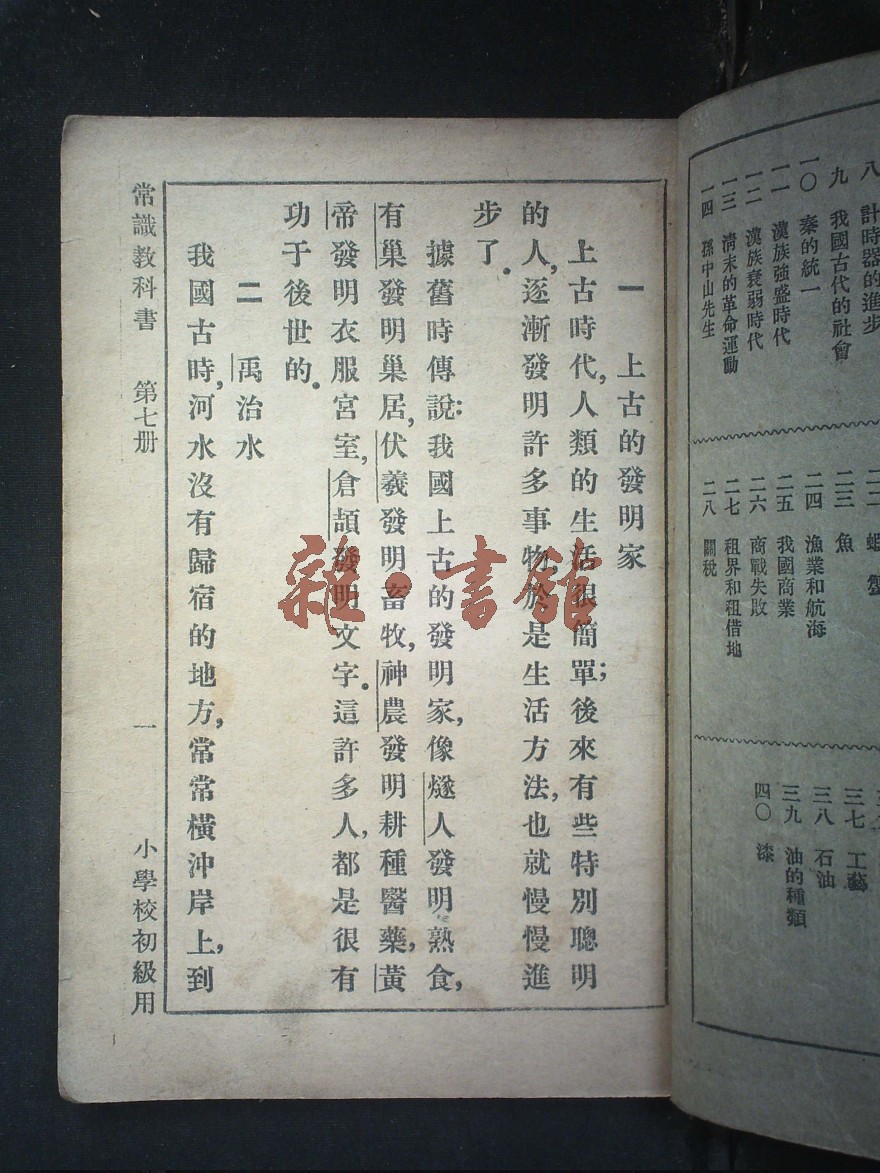 八 計時器的進步
九 我國古代的社會
一〇 秦的統一
一一 漢族強盛時代
一二 漢族衰弱時代
一三 清末的革命運動
一四 孫中山先生
二三 魚
二四 漁業和航海
二五 我國商業
二六 商戰失敗
二七 租界和租借地
二八 關稅
三七 工藝
三八 石油
三九 油的種類
四〇 漆
一 上古的發明家
上古時代，人類的生活很簡單；後來有些特別聰明
的人，逐漸發明許多事物，於是生活方法，也就慢慢進
步了。
據舊時傳說：我國上古的發明家，像燧人發明熟食，
有巢發明巢居，伏羲發明畜牧，神農發明耕種醫藥，黃
帝發明衣服宮室，倉頡發明文字。這許多人，都是很有
功于後世的。
二 禹治水
我國古時，河水沒有歸宿的地方，常常橫沖岸上，到
常識教科書 第七册 一 小學校初級用
雜·書館